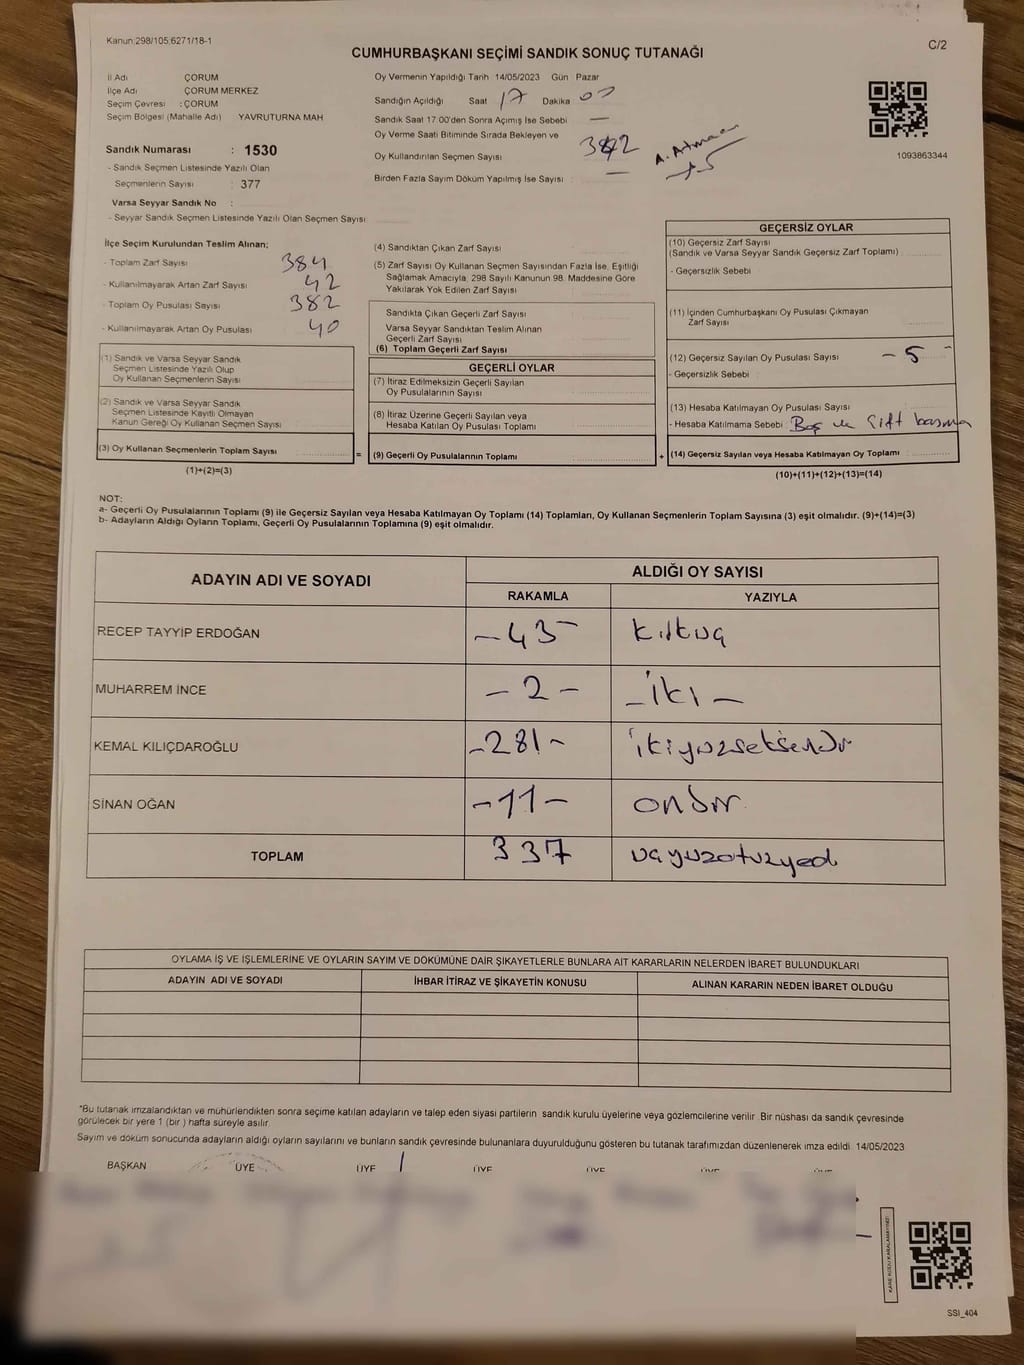 Kanun:298/105;6271/18-1
C/2
CUMHURBAŞKANI SEÇİMİ SANDIK SONUÇ TUTANAĞI
İl Adı ÇORUM
İlçe Adı ÇORUM MERKEZ
Seçim Çevresi : ÇORUM
Seçim Bölgesi (Mahalle Adı) YAVRUTURNA MAH
Sandık Numarası : 1530
- Sandık Seçmen Listesinde Yazılı Olan
Seçmenlerin Sayısı : 377
Varsa Seyyar Sandık No :
- Seyyar Sandık Seçmen Listesinde Yazılı Olan Seçmen Sayısı
Oy Vermenin Yapıldığı Tarih 14/05/2023 Gün Pazar
Sandığın Açıldığı Saat 17 Dakika 00
Sandık Saat 17.00'den Sonra Açımış İse Sebebi —
Oy Verme Saati Bitiminde Sırada Bekleyen ve
Oy Kullandırılan Seçmen Sayısı 342
Birden Fazla Sayım Döküm Yapılmış İse Sayısı : —
A. Atmaca
1093863344
İlçe Seçim Kurulundan Teslim Alınan;
- Toplam Zarf Sayısı 384
- Kullanılmayarak Artan Zarf Sayısı 42
- Toplam Oy Pusulası Sayısı 382
- Kullanılmayarak Artan Oy Pusulası 40
(1) Sandık ve Varsa Seyyar Sandık
Seçmen Listesinde Yazılı Olup
Oy Kullanan Seçmenlerin Sayısı
(2) Sandık ve Varsa Seyyar Sandık
Seçmen Listesinde Kayıtlı Olmayan
Kanun Gereği Oy Kullanan Seçmen Sayısı
(3) Oy Kullanan Seçmenlerin Toplam Sayısı
(1)+(2)=(3)
(4) Sandıktan Çıkan Zarf Sayısı
(5) Zarf Sayısı Oy Kullanan Seçmen Sayısından Fazla İse, Eşitliği
Sağlamak Amacıyla, 298 Sayılı Kanunun 98. Maddesine Göre
Yakılarak Yok Edilen Zarf Sayısı
Sandıkta Çıkan Geçerli Zarf Sayısı
Varsa Seyyar Sandıktan Teslim Alınan
Geçerli Zarf Sayısı
(6) Toplam Geçerli Zarf Sayısı
GEÇERLİ OYLAR
(7) İtiraz Edilmeksizin Geçerli Sayılan
Oy Pusulalarının Sayısı
(8) İtiraz Üzerine Geçerli Sayılan veya
Hesaba Katılan Oy Pusulası Toplamı
= (9) Geçerli Oy Pusulalarının Toplamı
GEÇERSİZ OYLAR
(10) Geçersiz Zarf Sayısı
(Sandık ve Varsa Seyyar Sandık Geçersiz Zarf Toplamı)
- Geçersizlik Sebebi
(11) İçinden Cumhurbaşkanı Oy Pusulası Çıkmayan
Zarf Sayısı
(12) Geçersiz Sayılan Oy Pusulası Sayısı - 5 -
- Geçersizlik Sebebi
(13) Hesaba Katılmayan Oy Pusulası Sayısı
- Hesaba Katılmama Sebebi Boş ve Çift basma
+ (14) Geçersiz Sayılan veya Hesaba Katılmayan Oy Toplamı
(10)+(11)+(12)+(13)=(14)
NOT:
a- Geçerli Oy Pusulalarının Toplamı (9) ile Geçersiz Sayılan veya Hesaba Katılmayan Oy Toplamı (14) Toplamları, Oy Kullanan Seçmenlerin Toplam Sayısına (3) eşit olmalıdır. (9)+(14)=(3)
b- Adayların Aldığı Oyların Toplamı, Geçerli Oy Pusulalarının Toplamına (9) eşit olmalıdır.
ADAYIN ADI VE SOYADI ALDIĞI OY SAYISI
RAKAMLA YAZIYLA
RECEP TAYYİP ERDOĞAN -43-
MUHARREM İNCE - 2 - - iki -
KEMAL KILIÇDAROĞLU -281- ikiyüzseksenbir
SİNAN OĞAN -11- onbir
TOPLAM 337 üçyüzotuzyedi
OYLAMA İŞ VE İŞLEMLERİNE VE OYLARIN SAYIM VE DÖKÜMÜNE DAİR ŞİKAYETLERLE BUNLARA AİT KARARLARIN NELERDEN İBARET BULUNDUKLARI
ADAYIN ADI VE SOYADI İHBAR İTİRAZ VE ŞİKAYETİN KONUSU ALINAN KARARIN NEDEN İBARET OLDUĞU
*Bu tutanak imzalandıktan ve mühürlendikten sonra seçime katılan adayların ve talep eden siyasi partilerin sandık kurulu üyelerine veya gözlemcilerine verilir. Bir nüshası da sandık çevresinde
görülecek bir yere 1 (bir ) hafta süreyle asılır.
Sayım ve döküm sonucunda adayların aldığı oyların sayılarını ve bunların sandık çevresinde bulunanlara duyurulduğunu gösteren bu tutanak tarafımızdan düzenlenerek imza edildi. 14/05/2023
BAŞKAN ÜYE ÜYE ÜYE ÜYE ÜYE
KARE KODU KARALAMAYINIZ!
SSI_404